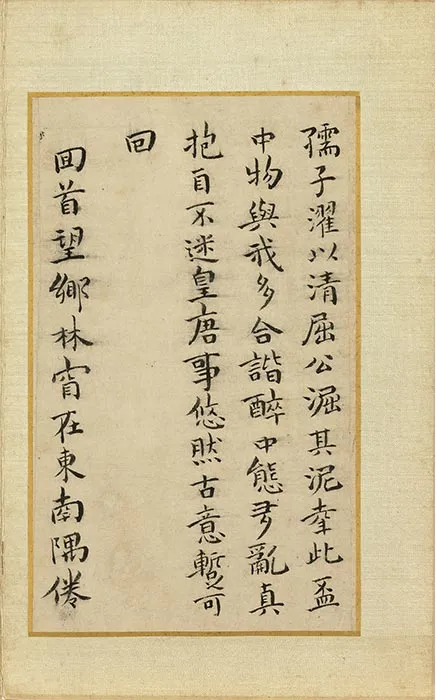 孺子濯以清屈公淈其泥幸此盃
中物與我多合諧醉中態亂真
抱自不迷皇唐事悠然古意蹔可
回
囬首望鄉林窅在東南隅倦